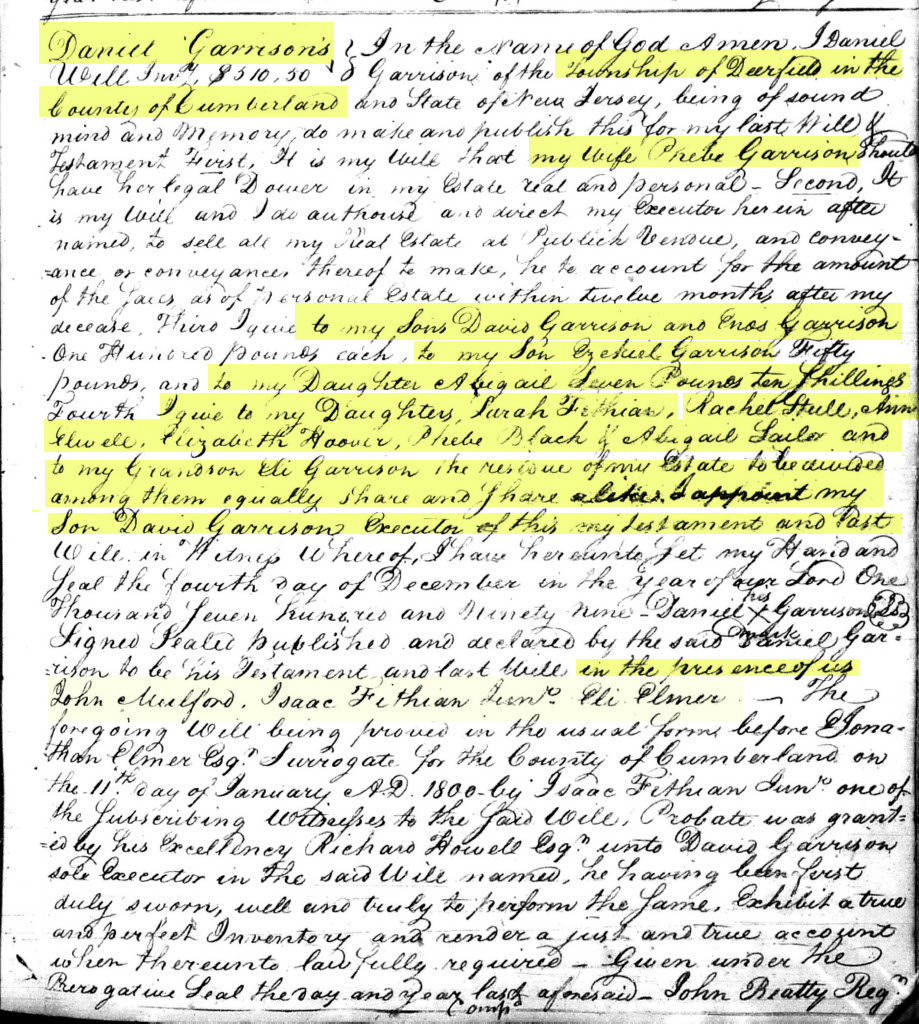 Daniel Garrison's } In the Name of God Amen. I Daniel
Will Invy. $510,50 } Garrison of the Township of Deerfield in the
County of Cumberland and State of New Jersey, being of sound
mind and Memory, do make and publish this for my last Will &
Testament First, It is my Will that my Wife Phebe Garrison should
have her legal Dower in my Estate real and personal – Second, It
is my Will and I do authorise and direct my Executor herein after
named, to sell all my Real Estate at Publick Vendue, and convey-
-ance or conveyances thereof to make, he to account for the amount
of the Sales, as of personal Estate within twelve months after my
decease, Third I give to my Sons David Garrison and Enos Garrison
One Hundred pounds each, to my Son Ezekiel Garrison Fifty
pounds, and to my Daughter Abigail Seven Pounds ten Shillings
Fourth I give to my Daughters, Sarah Fithian, Rachel Hull, Ann
Elwell, Elizabeth Hoover, Phebe Black & Abigail Sailor and
to my Grandson Eli Garrison the residue of my Estate to be divided
among them equally share and share alike. I appoint my
Son David Garrison Executor of this my Testament and Last
Will. in Witness Whereof, I have hereunto set my Hand and
Seal the fourth day of December in the Year of our Lord One
Thousand Seven hundred and Ninety nine Daniel his X mark Garrison
Signed Sealed published and declared by the said Daniel Gar-
-rison to be his Testament and last Will in the presence of us
John Mulford. Isaac Fithian Junr. Eli Elmer – The
foregoing Will being proved in the usual form before Jona-
than Elmer Esqr. Surrogate for the County of Cumberland on
the 11th day of January A.D. 1800 by Isaac Fithian Junr. one of
the Subscribing Witnesses to the said Will, Probate was grant-
-ed by his Excellency Richard Howell Esqr. unto David Garrison
sole Executor in the said Will named, he having been first
duly sworn, well and truly to perform the same, Exhibit a true
and perfect Inventory and render a just and true account
when thereunto lawfully required – Given under the
Prerogative Seal the day and year last aforesaid – John Beatty Regr.
Compd